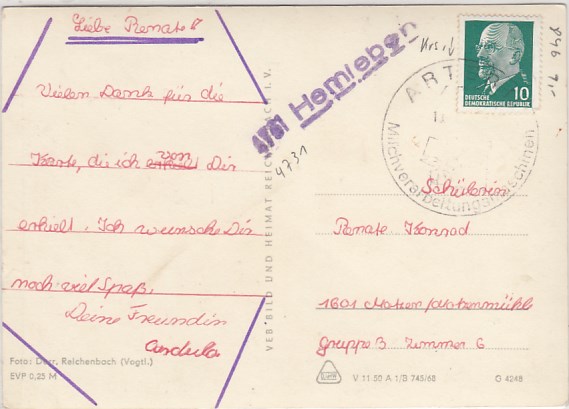 Liebe Renate!
Vielen Dank für die
Karte, die ich erhielt von Dir
erhielt. Ich wünsche Dir
noch viel Spaß.
Deine Freundin
Cordula
Foto: Darr, Reichenbach (Vogtl.)
EVP 0,25 M
VEB BILD UND HEIMAT REICHENBACH I. V.
4731 Hemleben
4731
ARTERN
Milchverarbeitungsmaschinen
DEUTSCHE
DEMOKRATISCHE REPUBLIK
10
Schülerin
Renate Konrad
1601 Motzen/Motzenmühl
Gruppe 3 Zimmer 6
V 11 50 A 1/B 745/68
G 4248